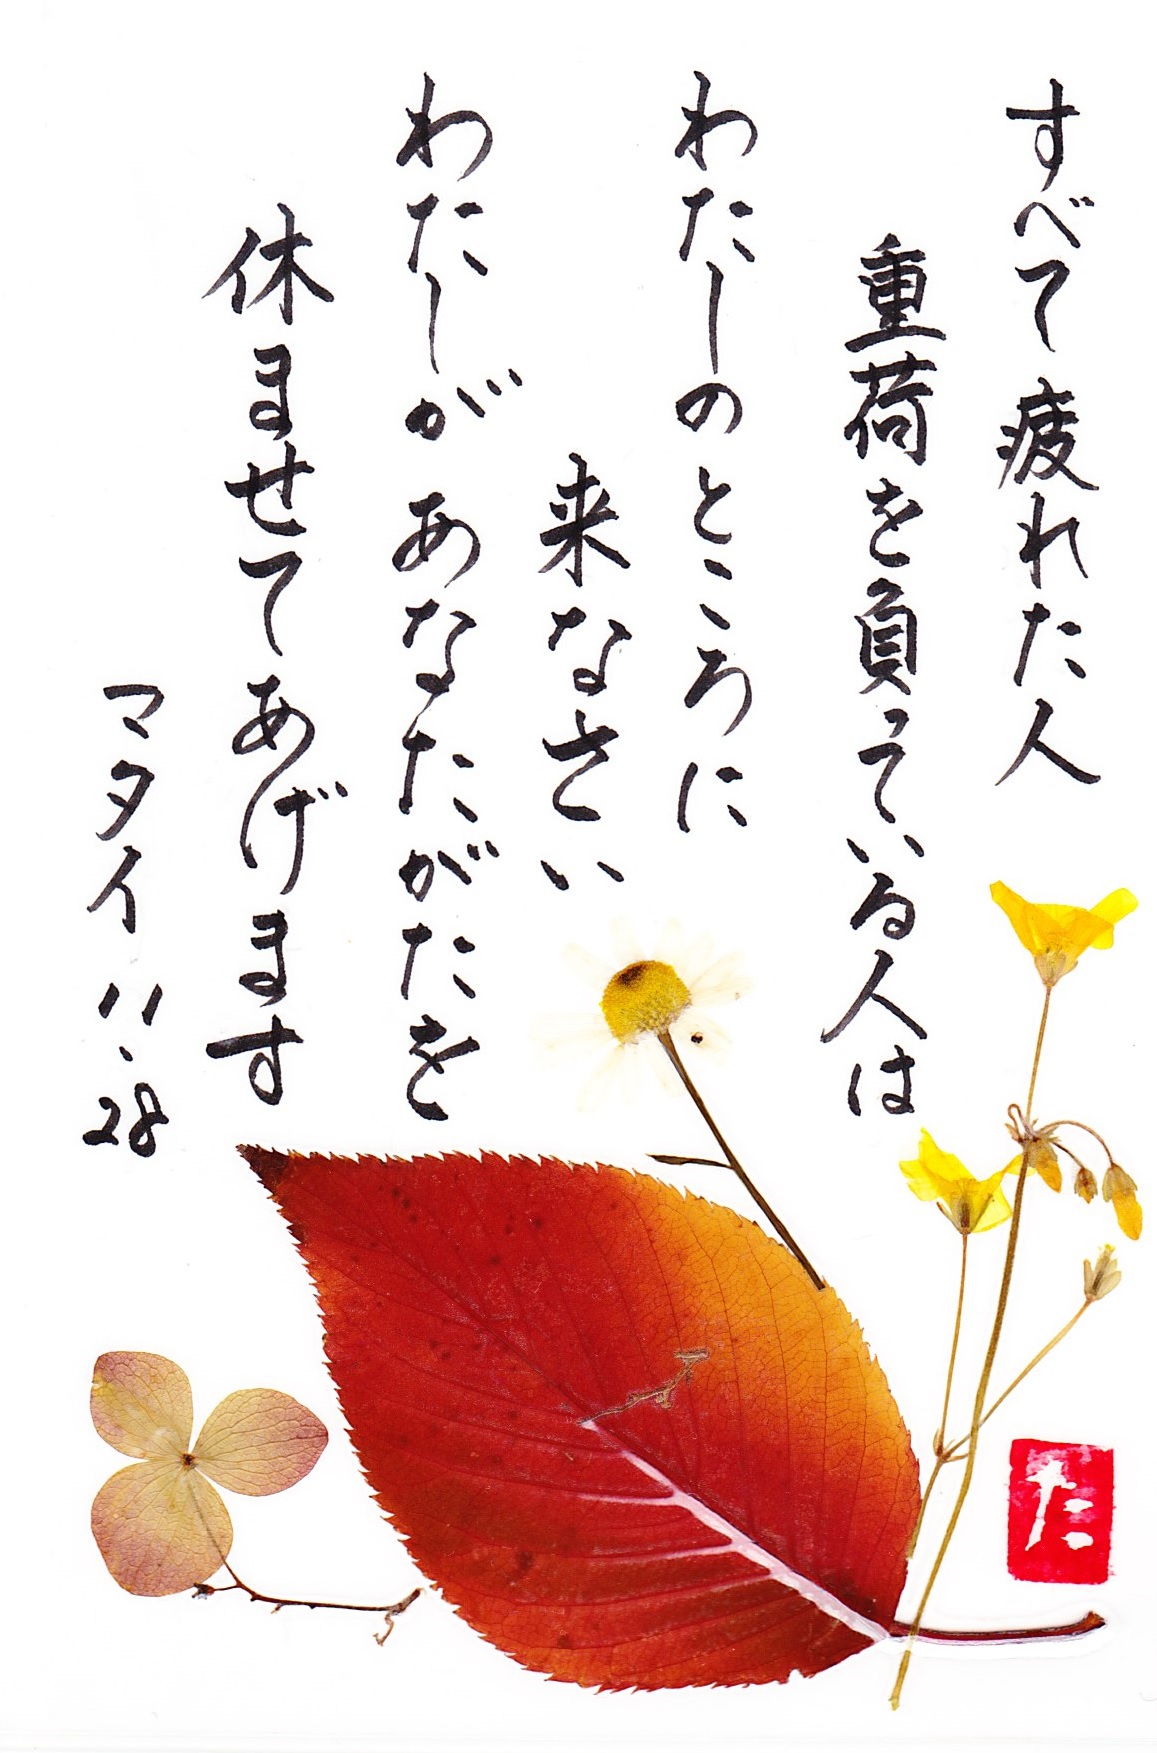 すべて疲れた人
重荷を負っている人は
わたしのところに
来なさい
わたしが あなたがたを
休ませてあげます
マタイ 11.28
た